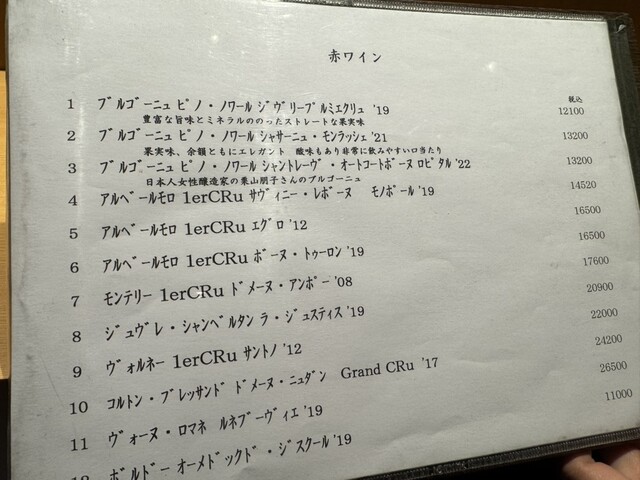 赤ワイン
税込
1 ﾌﾞﾙｺﾞｰﾆｭ ﾋﾟﾉ・ﾉﾜｰﾙ ｼﾞｳﾞﾘｰﾌﾟﾙﾐｴｸﾘｭ '19 12100
豊富な旨味とミネラルののったストレートな果実味
2 ﾌﾞﾙｺﾞｰﾆｭ ﾋﾟﾉ・ﾉﾜｰﾙ ｼｬｻｰﾆｭ・ﾓﾝﾗｯｼｪ '21 13200
果実味、余韻ともにエレガント 酸味もあり非常に飲みやすい口当たり
3 ﾌﾞﾙｺﾞｰﾆｭ ﾋﾟﾉ・ﾉﾜｰﾙ ｼｬﾝﾄﾚｰｳﾞ・ｵｰﾄｺｰﾄﾎﾞｰﾇ ﾛﾋﾟﾀﾙ '22 13200
日本人女性醸造家の栗山朋子さんのブルゴーニュ
4 ｱﾙﾍﾞｰﾙﾓﾛ 1erCRu ｻｳﾞｨﾆｰ・ﾚﾎﾞｰﾇ ﾓﾉﾎﾟｰﾙ '19 14520
5 ｱﾙﾍﾞｰﾙﾓﾛ 1erCRu ｴｸﾞﾛ '12 16500
6 ｱﾙﾍﾞｰﾙﾓﾛ 1erCRu ﾎﾞｰﾇ・ﾄｩｰﾛﾝ '19 16500
7 ﾓﾝﾃﾘｰ 1erCRu ﾄﾞﾒｰﾇ・ｱﾝﾎﾟｰ '08 17600
8 ｼﾞｭｳﾞﾚ・ｼｬﾝﾍﾞﾙﾀﾝ ﾗ・ｼﾞｭｽﾃｨｽ '19 20900
9 ｳﾞｫﾙﾈｰ 1erCRu ｻﾝﾄﾉ '12 22000
10 ｺﾙﾄﾝ・ﾌﾞﾚｯｻﾝﾄﾞ ﾄﾞﾒｰﾇ・ﾆｭﾀﾞﾝ Grand CRu '17 24200
11 ｳﾞｫｰﾇ・ﾛﾏﾈ ﾙﾈﾌﾞｰｳﾞｨｴ '19 26500
ﾎﾞﾙﾄﾞｰ ｵｰﾒﾄﾞｯｸﾄﾞ・ｼﾞｽｸｰﾙ '19 11000